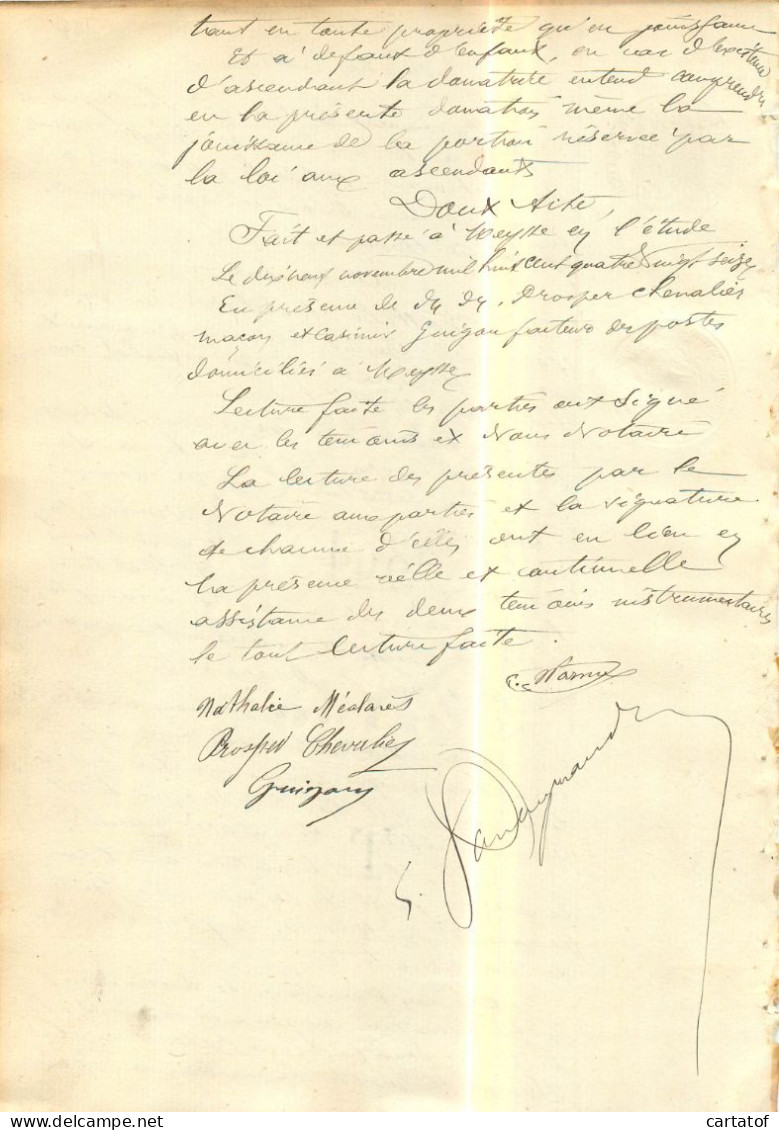 tant en toute propriété qu'en jouissance
Et à défaut d'enfant, en cas d'existence
d'ascendant la donatrice entend comprendre
en la présente donation même la
jouissance de la portion réservée par
la loi aux ascendants
Dont Acte,
Fait et passé à Meysse en l'étude
Le dix neuf novembre mil huit cent quatre vingt seize
En présence de M M. Prosper Chevalier
maçon et Casimir Guigon facteur des postes
domiciliés à Meysse
Lecture faite les parties ont signé
avec les témoins et Nous Notaire
La lecture des présentes par le
Notaire aux parties et la signature
de chacune d'elles ont eu lieu en
la présence réelle et continuelle
assistance des deux témoins instrumentaires
le tout lecture faite.
Nathalie
Prosper Chevalier
Guigon
cartatof